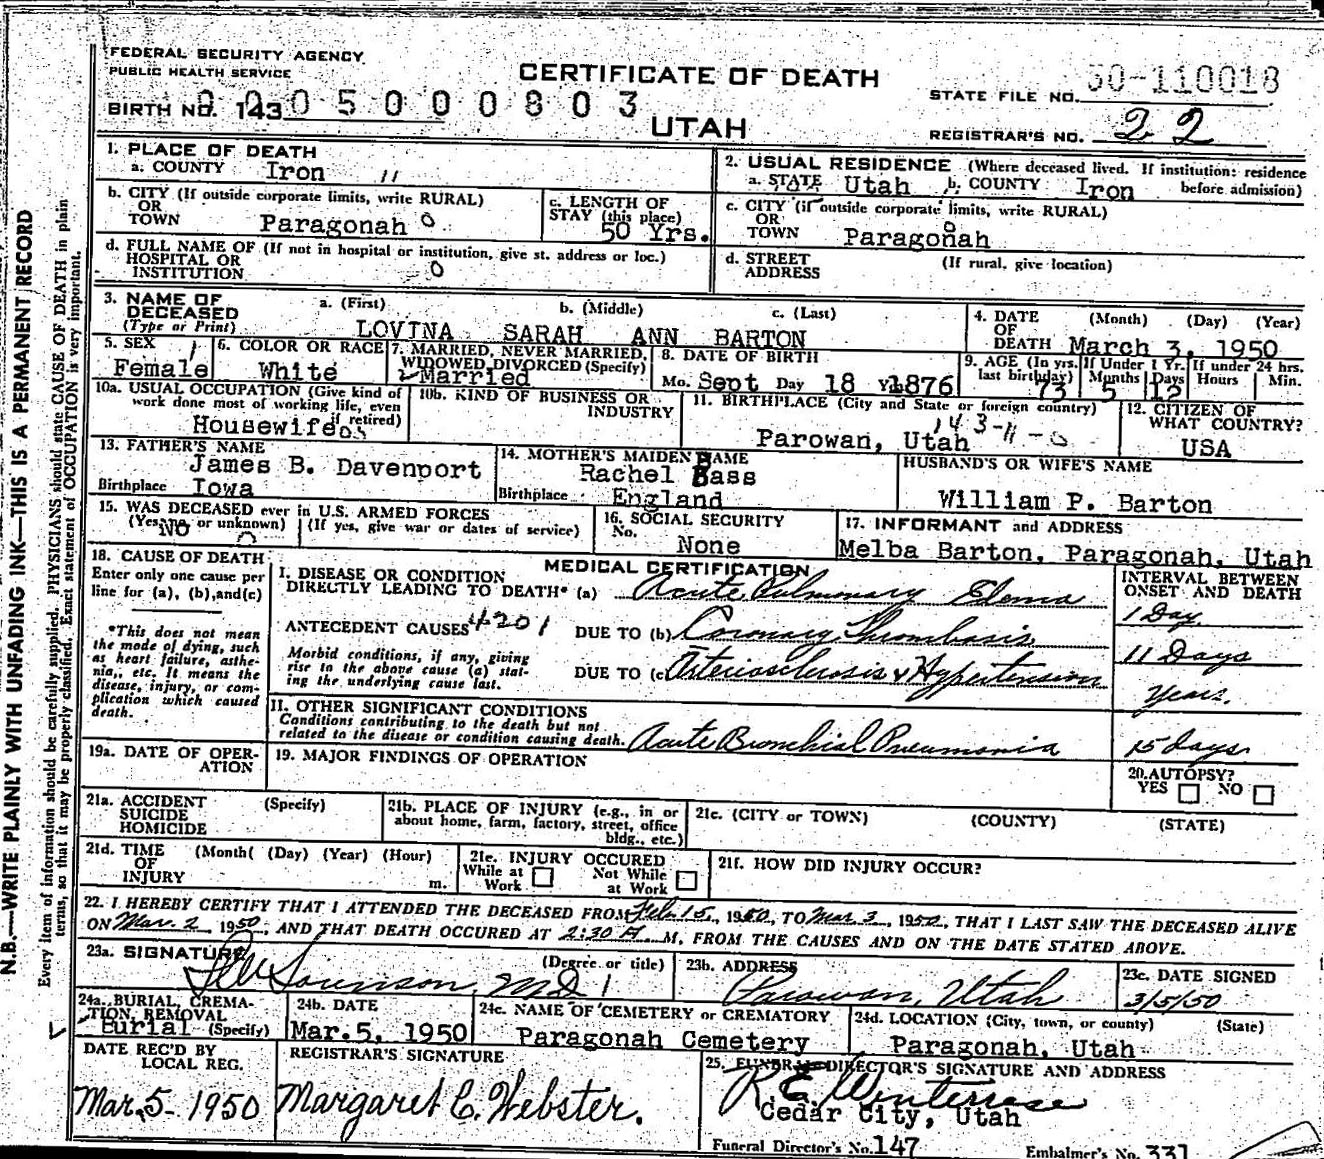 FEDERAL SECURITY AGENCY
PUBLIC HEALTH SERVICE
CERTIFICATE OF DEATH
STATE FILE NO. 50-110018
BIRTH NO. 143 0005000803
UTAH
REGISTRAR'S NO. 22
1. PLACE OF DEATH
a. COUNTY Iron 11
2. USUAL RESIDENCE (Where deceased lived. If institution: residence
a. STATE Utah b. COUNTY Iron before admission)
b. CITY (If outside corporate limits, write RURAL)
OR
TOWN Paragonah 0
c. LENGTH OF
STAY (this place)
50 Yrs.
c. CITY (if outside corporate limits, write RURAL)
OR
TOWN Paragonah
d. FULL NAME OF (If not in hospital or institution, give st. address or loc.)
HOSPITAL OR
INSTITUTION 0
d. STREET (If rural, give location)
ADDRESS
3. NAME OF
DECEASED
(Type or Print)
a. (First) b. (Middle) c. (Last)
LOVINA SARAH ANN BARTON
4. DATE (Month) (Day) (Year)
OF
DEATH March 3, 1950
5. SEX
Female
6. COLOR OR RACE
White
7. MARRIED, NEVER MARRIED,
WIDOWED DIVORCED (Specify)
Married
8. DATE OF BIRTH
Mo. Sept Day 18 Y1876
9. AGE (In yrs. If Under 1 Yr. If under 24 hrs.
last birthday) Months Days Hours Min.
73 5 12
10a. USUAL OCCUPATION (Give kind of
work done most of working life, even
if retired)
Housewife
10b. KIND OF BUSINESS OR
INDUSTRY
11. BIRTHPLACE (City and State or foreign country)
143-11-0
Parowan, Utah
12. CITIZEN OF
WHAT COUNTRY?
USA
13. FATHER'S NAME
James B. Davenport
Birthplace Iowa
14. MOTHER'S MAIDEN NAME
Rachel Bass
Birthplace England
HUSBAND'S OR WIFE'S NAME
William P. Barton
15. WAS DECEASED ever in U.S. ARMED FORCES
(Yes, no or unknown) (If yes, give war or dates of service)
No
16. SOCIAL SECURITY
No.
None
17. INFORMANT and ADDRESS
Melba Barton, Paragonah, Utah
18. CAUSE OF DEATH
Enter only one cause per
line for (a), (b), and (c)
*This does not mean
the mode of dying, such
as heart failure, asthe-
nia, etc. It means the
disease, injury, or com-
plication which caused
death.
MEDICAL CERTIFICATION
I. DISEASE OR CONDITION
DIRECTLY LEADING TO DEATH* (a) Acute Pulmonary Edema
INTERVAL BETWEEN
ONSET AND DEATH
1 Day
ANTECEDENT CAUSES 4201 DUE TO (b) Coronary Thrombosis
11 Days
Morbid conditions, if any, giving
rise to the above cause (a) stat-
ing the underlying cause last.
DUE TO (c) Arteriosclerosis & Hypertension
Years.
II. OTHER SIGNIFICANT CONDITIONS
Conditions contributing to the death but not
related to the disease or condition causing death. Acute Bronchial Pneumonia
15 days
19a. DATE OF OPER-
ATION
19. MAJOR FINDINGS OF OPERATION
20. AUTOPSY?
YES NO
21a. ACCIDENT (Specify)
SUICIDE
HOMICIDE
21b. PLACE OF INJURY (e.g., in or
about home, farm, factory, street, office
bldg., etc.)
21c. (CITY or TOWN) (COUNTY) (STATE)
21d. TIME (Month( (Day) (Year) (Hour)
OF
INJURY m.
21e. INJURY OCCURED
While at Work Not While at Work
21f. HOW DID INJURY OCCUR?
22. I HEREBY CERTIFY THAT I ATTENDED THE DECEASED FROM Feb. 15, 1950, TO Mar. 3, 1950, THAT I LAST SAW THE DECEASED ALIVE
ON Mar. 2 1950, AND THAT DEATH OCCURED AT 2:30 A M, FROM THE CAUSES AND ON THE DATE STATED ABOVE.
23a. SIGNATURE (Degree or title)
M.D.
23b. ADDRESS
Parowan, Utah
23c. DATE SIGNED
3/5/50
24a. BURIAL, CREMA-
TION, REMOVAL
Burial (Specify)
24b. DATE
Mar. 5, 1950
24c. NAME OF CEMETERY or CREMATORY
Paragonah Cemetery
24d. LOCATION (City, town, or county) (State)
Paragonah, Utah
DATE REC'D BY
LOCAL REG.
Mar. 5 - 1950
REGISTRAR'S SIGNATURE
Margaret C. Webster.
25. FUNERAL DIRECTOR'S SIGNATURE AND ADDRESS
Cedar City, Utah
Funeral Director's No. 147 Embalmer's No. 331
N.B.—WRITE PLAINLY WITH UNFADING INK—THIS IS A PERMANENT RECORD
Every item of information should be carefully supplied. PHYSICIANS should state CAUSE OF DEATH in plain
terms, so that it may be properly classified. Exact statement of OCCUPATION is very important.